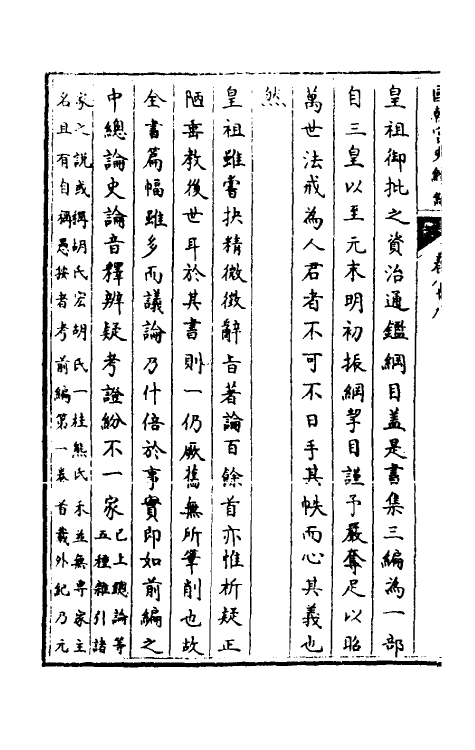 國朝宮史續編 卷八十八
皇祖御批之資治通鑑綱目蓋是書集三編為一部
自三皇以至元末明初振綱挈目謹予嚴奪足以昭
萬世法戒為人君者不可不日手其帙而心其義也
然
皇祖雖嘗抉精微徵辭旨著論百餘首亦惟析疑正
陋垂教後世耳於其書則一仍厥舊無所筆削也故
全書篇幅雖多而議論乃什倍於事實即如前編之
中總論史論音釋辨疑考證紛不一家已上總論等
五種雜引諸
家之說或稱胡氏宏胡氏一桂熊氏禾並無專家主
名且有自稱愚按者考前編第一卷首載外紀乃元